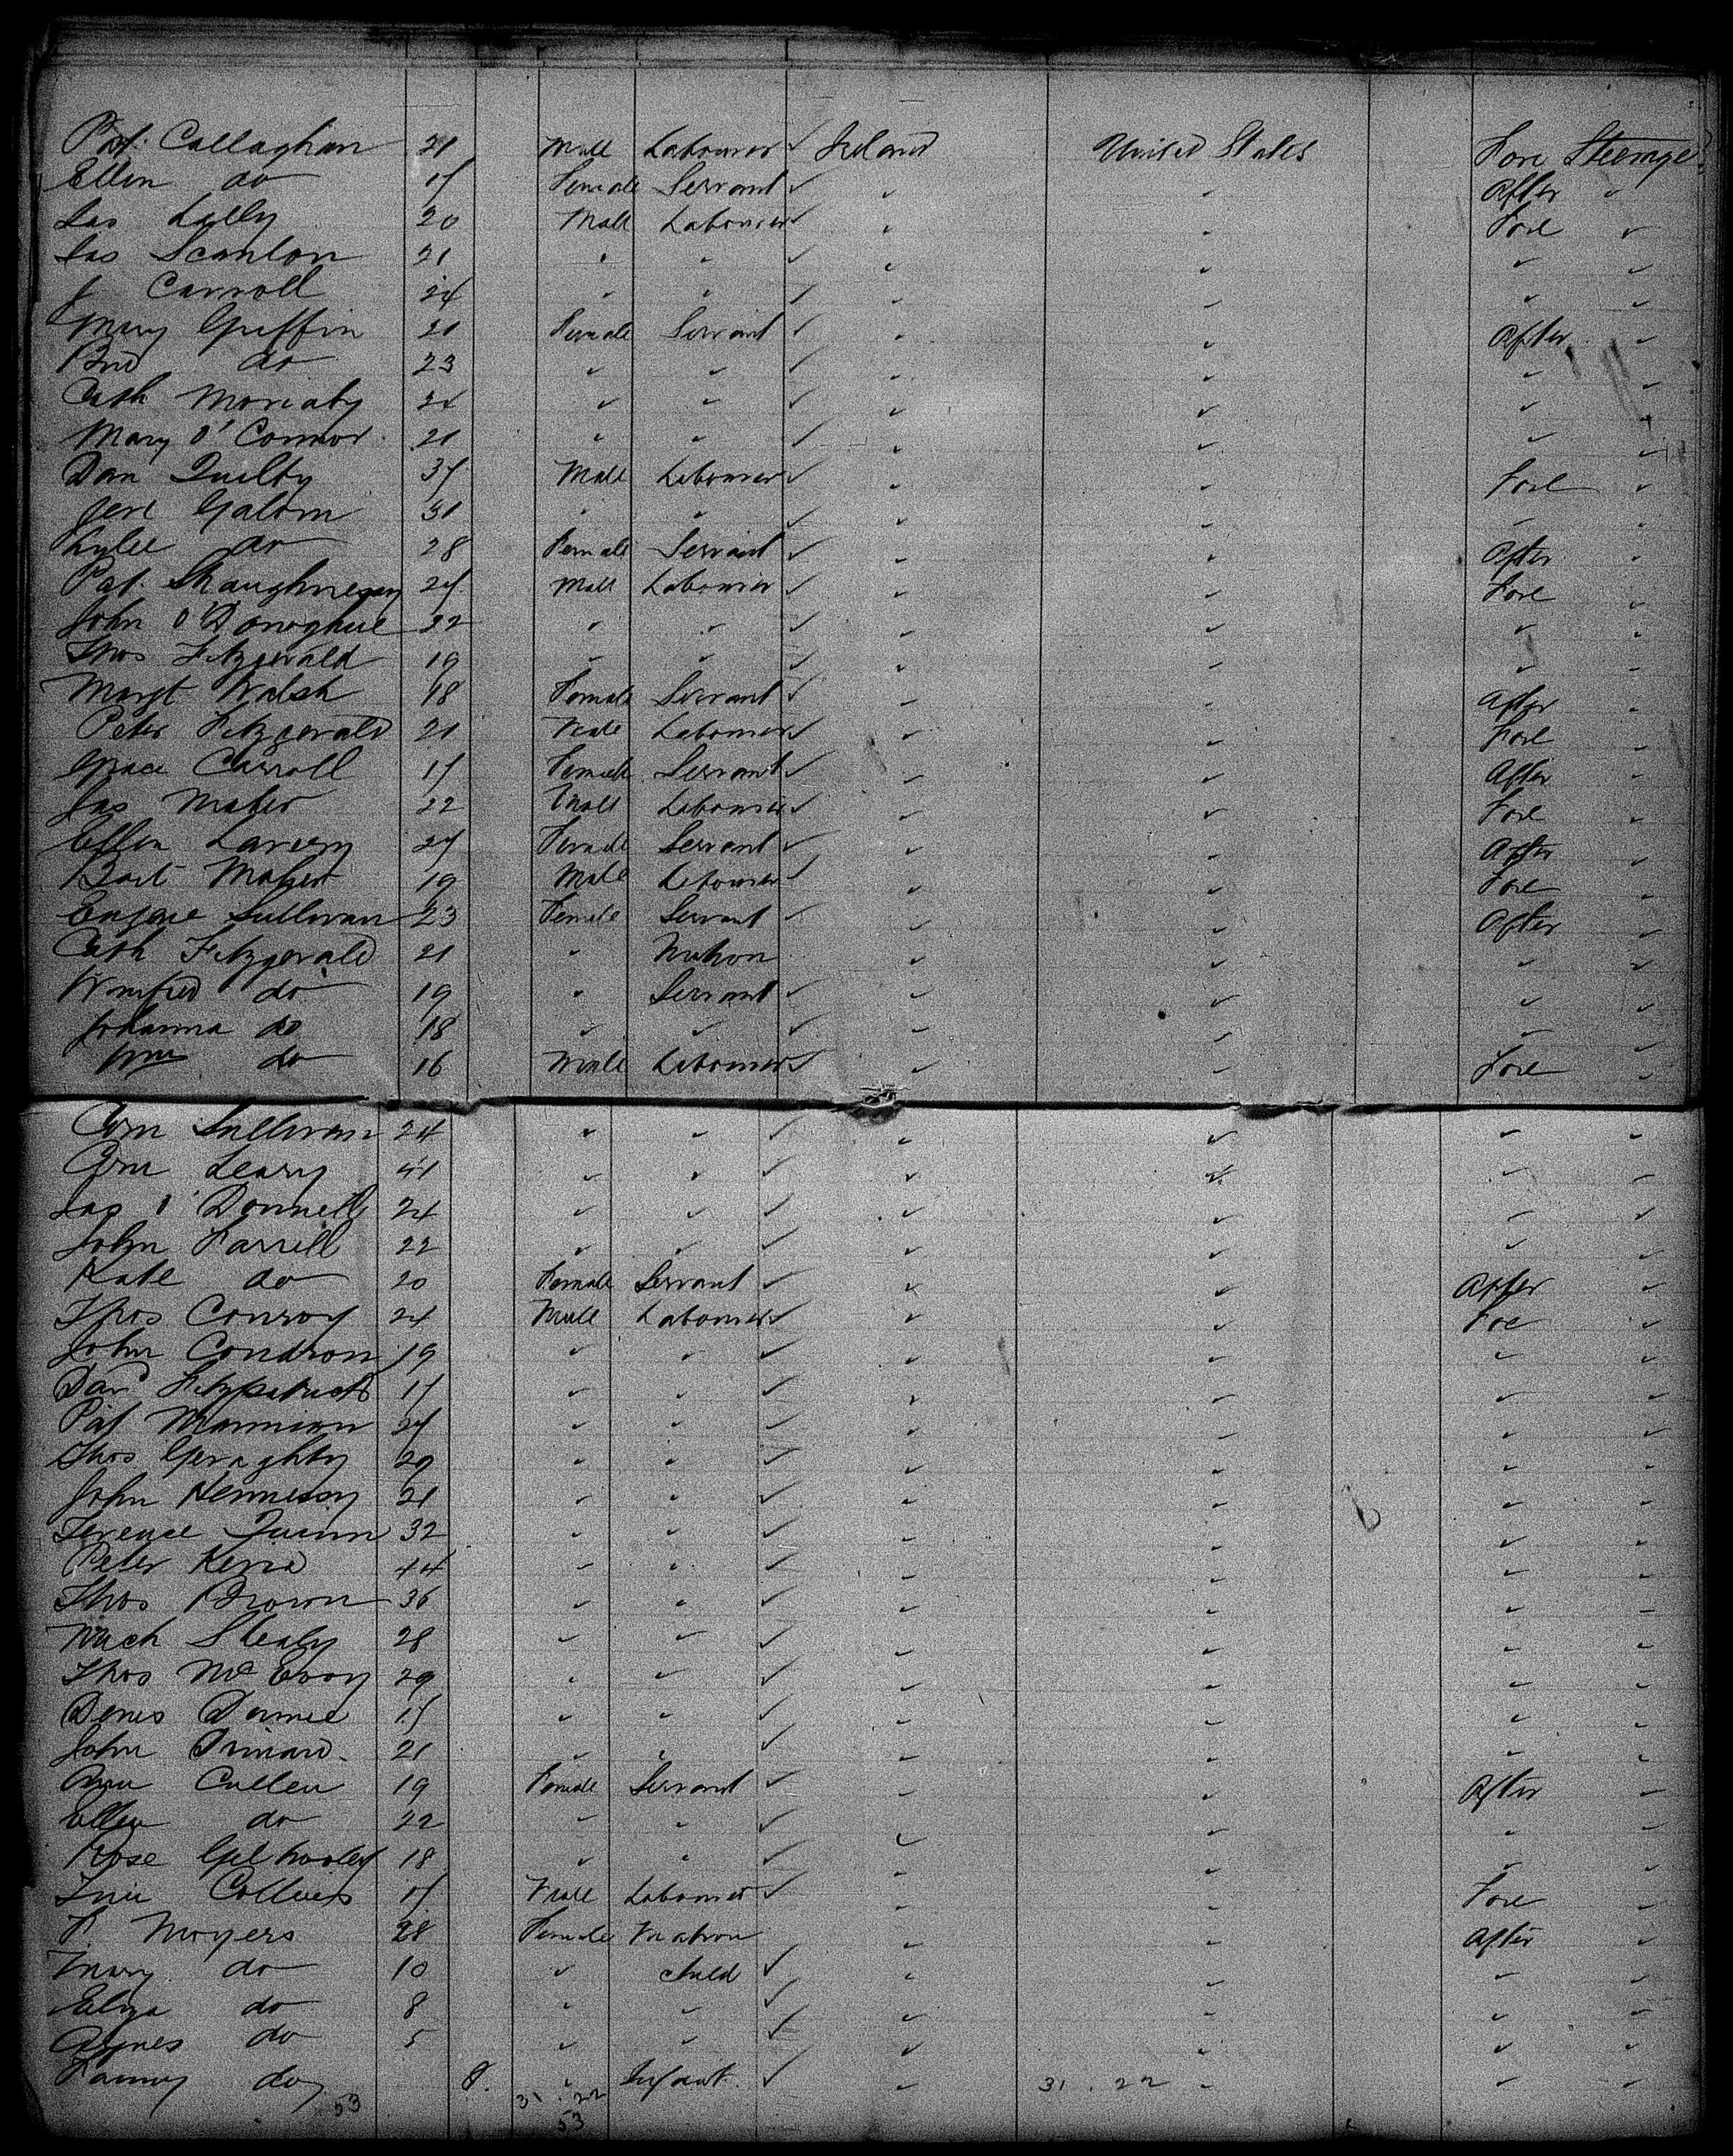 Pat. Callaghan 21 Male Labourer ✓ Ireland United States Fore Steerage
Ellen do 17 Female Servant ✓ " " After "
Jas Lilly 20 Male Labourer ✓ " " Fore "
Jas Scanlon 21 " " ✓ " " " "
J Carroll 24 " " ✓ " " " "
Mary Griffin 21 Female Servant ✓ " " After "
Brid do 23 " " ✓ " " " "
Cath Moriaty 24 " " ✓ " " " "
Mary O'Connor 21 " " ✓ " " " "
Dan Quilty 37 Male Labourer ✓ " " Fore "
Jere 31 " " ✓ " " " "
do 28 Female Servant ✓ " " After "
Pat. Shaughnessy 27 Male Labourer ✓ " " Fore "
John O'Donoghue 22 " " ✓ " " " "
Thos Fitzgerald 19 " " ✓ " " " "
Margt Walsh 18 Female Servant ✓ " " After "
Peter Fitzgerald 21 Male Labourer ✓ " " Fore "
Grace Carroll 17 Female Servant ✓ " " After "
Jas Maher 22 Male Labourer ✓ " " Fore "
Ellen 27 Female Servant ✓ " " After "
Bart Maher 19 Male Labourer ✓ " " Fore "
Sullivan 23 Female Servant ✓ " " After "
Cath Fitzgerald 21 " Matron " " " "
Winifred do 19 " Servant ✓ " " " "
Johanna do 18 " " ✓ " " " "
Wm do 16 Male Labourer ✓ " " Fore "
Corn Sullivan 24 " " ✓ " " " "
Leary 41 " " ✓ " " " "
Jas O'Donnell 24 " " ✓ " " " "
John Farrell 22 " " ✓ " " " "
Kate do 20 Female Servant ✓ " " After "
Thos Conroy 24 Male Labourer ✓ " " Foe "
John Condron 19 " " ✓ " " " "
Dan Fitzpatrick 17 " " ✓ " " " "
Pat Mannion 27 " " ✓ " " " "
Thos Geraghty 29 " " ✓ " " " "
John Hennessy 21 " " ✓ " " " "
Terence Quinn 32 " " ✓ " " " "
Peter 44 " " ✓ " " " "
Thos Brown 36 " " ✓ " " " "
Mich 28 " " ✓ " " " "
Thos McEvoy 29 " " ✓ " " " "
Denis 17 " " ✓ " " " "
John 21 " " ✓ " " " "
Ann Cullen 19 Female Servant ✓ " " After "
Ellen do 22 " " ✓ " " " "
Rose Gilhooley 18 " " ✓ " " " "
Collins 17 Male Labourer ✓ " " Fore "
Moyers 28 Female Matron " " After "
Mary do 10 " Child ✓ " " " "
Eliza do 8 " " ✓ " " " "
Agnes do 5 " " ✓ " " " "
Fanny do 8. " Infant ✓ " 31 . 22 " " "
53 31 . 22
53